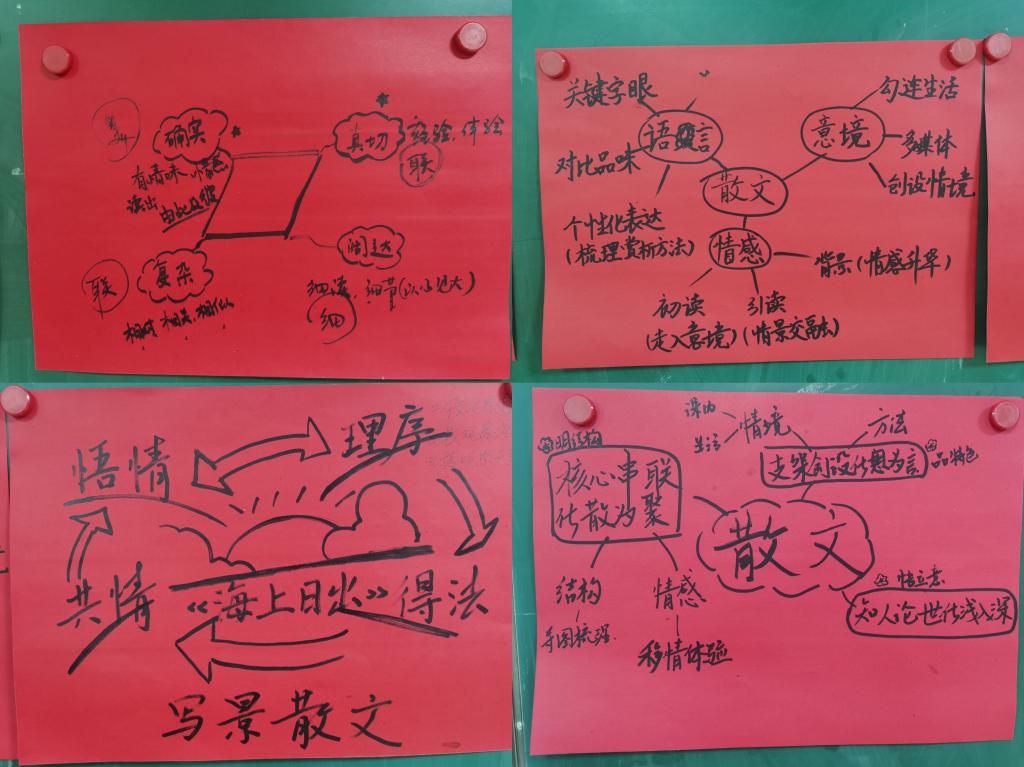 确实
真切
体验
联
有情味、情感
读出
由此及彼
阔达
联
复杂
细读、细节(以小见大)
细
相对、相关、相似
关键字眼
语言
对比品味
个性化表达
(梳理赏析方法)
意境
勾连生活
多媒体
创设情境
散文
情感
背景(情感升华)
初读
(走入意境)
引读
(情景交融)
悟情
理序
共情
《海上日出》
得法
写景散文
课内
生活
情境
方法
支架创设化思为言
品特色
明结构
核心串联
化散为聚
散文
结构
导图梳理
情感
移情体验
悟立意
知人论世化浅入深